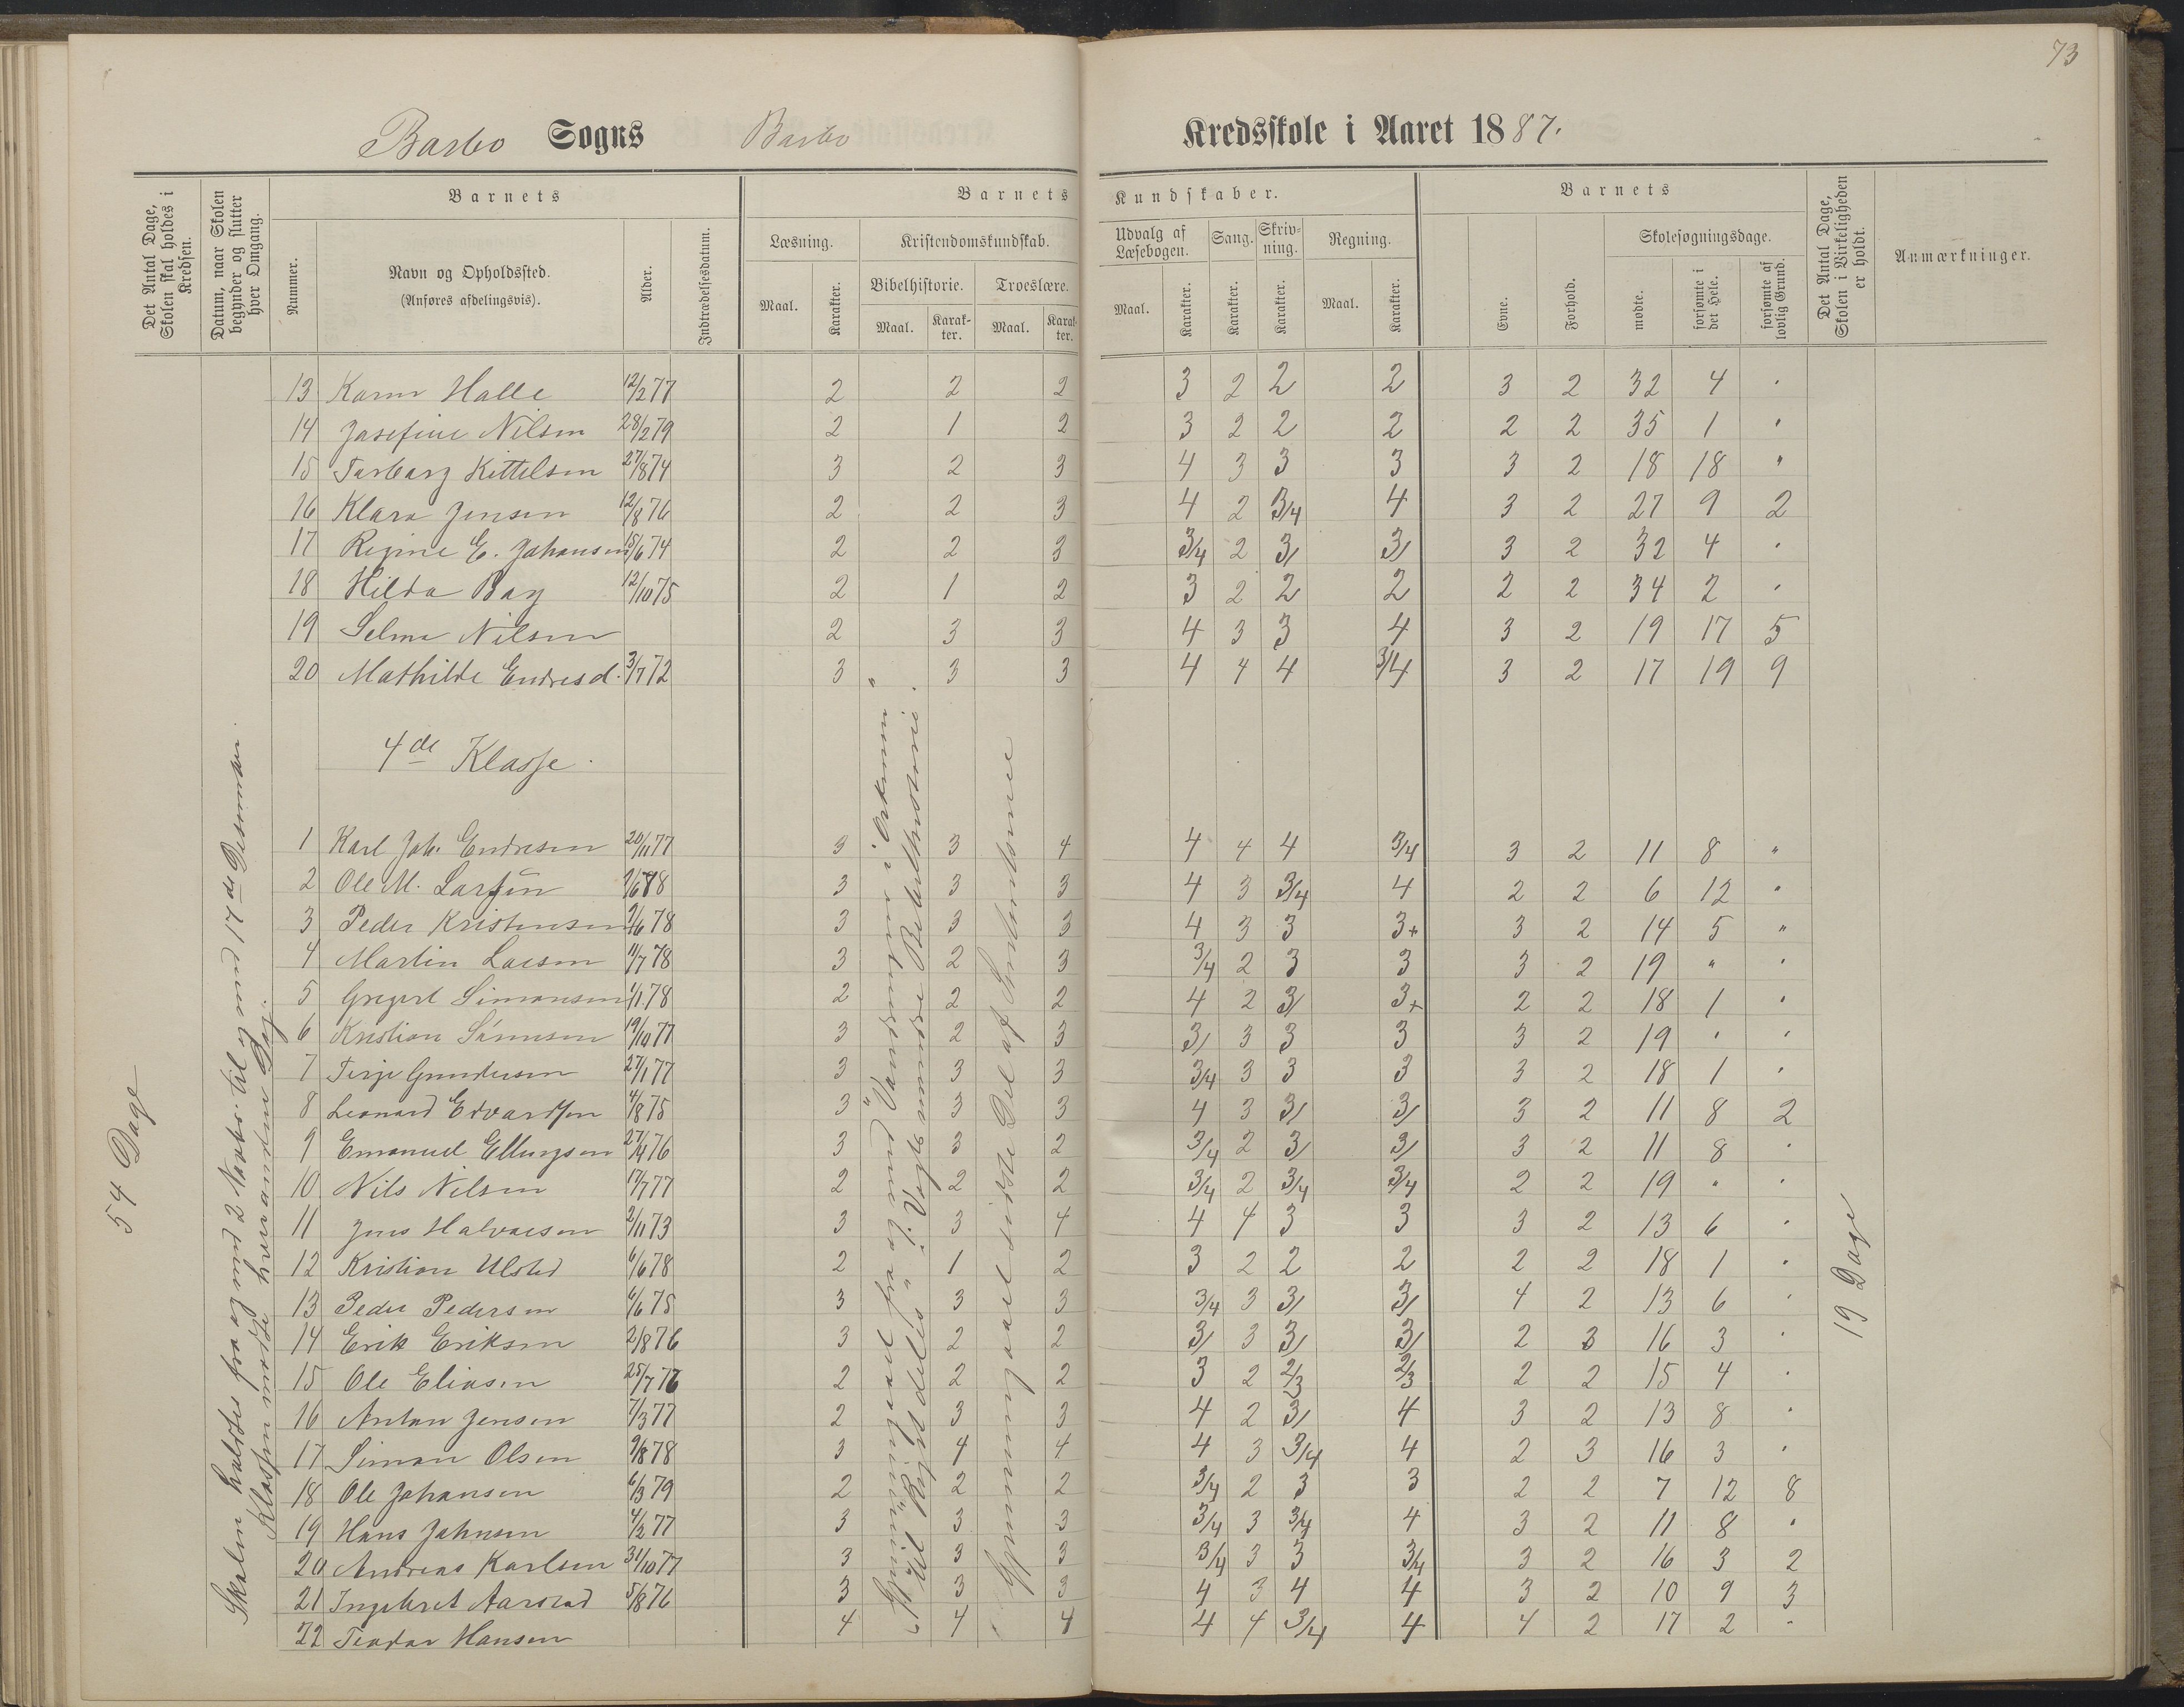 73
Barbo Sogns Barbo Kredsskole i Aaret 1887.
Det Antal Dage, Skolen skal holdes i Kredsen.
Datum, naar Skolen begynder og slutter hver Omgang.
Barnets
Nummer.
Navn og Opholdssted.
(Anføres afdelingsvis).
Alder.
Indtrædelsesdatum.
Barnets Kundskaber.
Læsning.
Maal.
Karakter.
Kristendomskundskab.
Bibelhistorie.
Maal.
Karakter.
Troeslære.
Maal.
Karakter.
Udvalg af Læsebogen.
Maal.
Karakter.
Sang.
Karakter.
Skrivning.
Karakter.
Regning.
Maal.
Karakter.
Barnets
Evne.
Forhold.
Skolesøgningsdage.
mødte.
forsømte i det Hele.
forsømte af lovlig Grund.
Det Antal Dage, Skolen i Virkeligheden er holdt.
Anmærkninger.
13 Karen Halle 12/2 77 2 2 2 3 2 2 2 3 2 32 4 "
14 Josefine Nilsen 28/2 79 2 1 2 3 2 2 2 2 2 35 1 "
15 Torborg Kittelsen 27/8 74 3 2 3 4 3 3 3 3 2 18 18 "
16 Klara Jensen 12/8 76 2 2 3 4 2 3/4 4 3 2 27 9 2
17 Regine E. Johansen 15/6 74 2 2 3 3/4 2 3/ 3/ 3 2 32 4 "
18 Hilda Bay 12/10 75 2 1 2 3 2 2 2 2 2 34 2 "
19 Selma Nilsen 2 3 3 4 3 3 4 3 2 19 17 5
20 Mathilde Endresd. 3/7 72 3 3 3 4 4 4 3/4 3 2 17 19 9
4de Klasse.
1 Karl Joh. Endresen 20/11 77 3 3 4 4 4 4 3/4 3 2 11 8 "
2 Ole M. Larsen 78 3 3 3 4 3 3/4 4 2 2 6 12 "
3 Peder Kristensen 9/6 78 3 3 3 4 3 3 3+ 3 2 14 5 "
4 Martin Larsen 11/7 78 3 2 3 3/4 2 3 3 3 2 19 " "
5 Gregert Simonsen 1/1 78 2 2 2 4 2 3/ 3+ 2 2 18 1 "
6 Kristian Sørensen 19/10 77 3 2 3 3/ 3 3 3 3 2 19 " "
7 Terje Gundersen 27/1 77 3 3 3 3/4 3 3 3 3 2 18 1 "
8 Leonard Edvardsen 4/8 75 3 3 3 4 3 3/ 3/ 3 2 11 8 2
9 Emanuel Ellingsen 27/4 76 3 3 2 3/4 2 3/ 3/ 3 2 11 8 "
10 Nils Nilsen 17/7 77 2 2 2 3/4 2 3/4 3/4 2 2 19 " "
11 Jens Halvorsen 2/11 73 3 3 4 4 4 3 3 3 2 13 6 "
12 Kristian Ulsted 6/6 78 2 1 2 3 2 2 2 2 2 18 1 "
13 Peder Pedersen 6/6 75 3 3 3 3/4 3 3/ 3/ 4 2 13 6 "
14 Erik Eriksen 2/8 76 3 2 2 3/ 3 3/ 3/ 2 3 16 3 "
15 Ole Eliasen 25/7 76 2 2 2 3 2 2/3 2/3 2 2 15 4 "
16 Anton Jensen 7/3 77 2 3 3 4 2 3/ 4 3 2 13 8 "
17 Simon Olsen 9/8 78 3 4 4 4 3 3/4 4 2 3 16 3 "
18 Ole Johansen 6/3 79 2 2 2 3/4 2 3 3 2 2 7 12 8
19 Hans Johnsen 4/2 77 3 3 3 3/4 3 3/4 4 3 2 11 8 "
20 Andreas Karlsen 31/10 77 3 3 3 3/4 3 3 3/4 3 2 16 3 2
21 Ingebret Aarstad 5/8 76 3 3 3 4 3 4 4 3 2 10 9 3
22 Teodor Hansen 4 4 4 4 4 3/4 4 4 2 17 2 "
54 Dage
Skolen holdtes fra og med 2 Novbr. til og med 17de Desember.
Klassen mødte hver anden Dag.
Gjennemgaaet fra og med "Vandringen i Ørkenen"
til "Kristi død" i Vogts mindre Bibelhistorie.
Gjennemgaaet sidste Del af
19 Dage